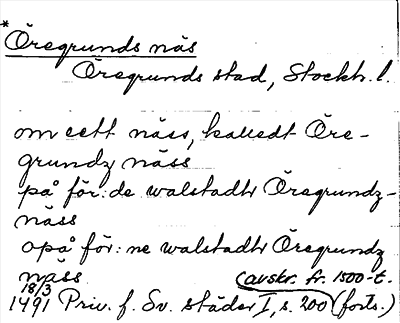 *
Öregrunds näs
Öregrunds stad, Stockh. l.
om eett näss, kalledt Öre-
grundz näss
på för:de walstadtr Öregrundz-
näss
opå för:ne walstadtr Öregrundz
näss (avskr. fr. 1500-t.
18/3
1491 Priv. f. Sv. städer I, s. 200 (forts.)